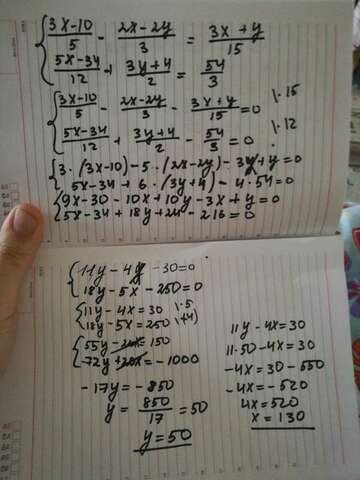 { (3x-10)/5 - (2x-2y)/3 = (3x+y)/15
(5x-34)/12 + (3y+4)/2 = 54/3
{ (3x-10)/5 - (2x-2y)/3 - (3x+y)/15 = 0 |·15
(5x-34)/12 + (3y+4)/2 - 54/3 = 0 |·12
{ 3·(3x-10)-5·(2x-2y)-3x+y=0
5x-34+6·(3y+4)-4·54=0
{ 9x-30-10x+10y-3x+y=0
5x-34+18y+24-216=0
{ 11y-4x-30=0
18y-5x-250=0
{ 11y-4x=30 |·5
18y-5x=250 |·(4)
{ 55y-20x=150
72y+20x=-1000
-17y=-850
y=850/17=50
y=50
11y-4x=30
11·50-4x=30
-4x=30-550
-4x=-520
4x=520
x=130